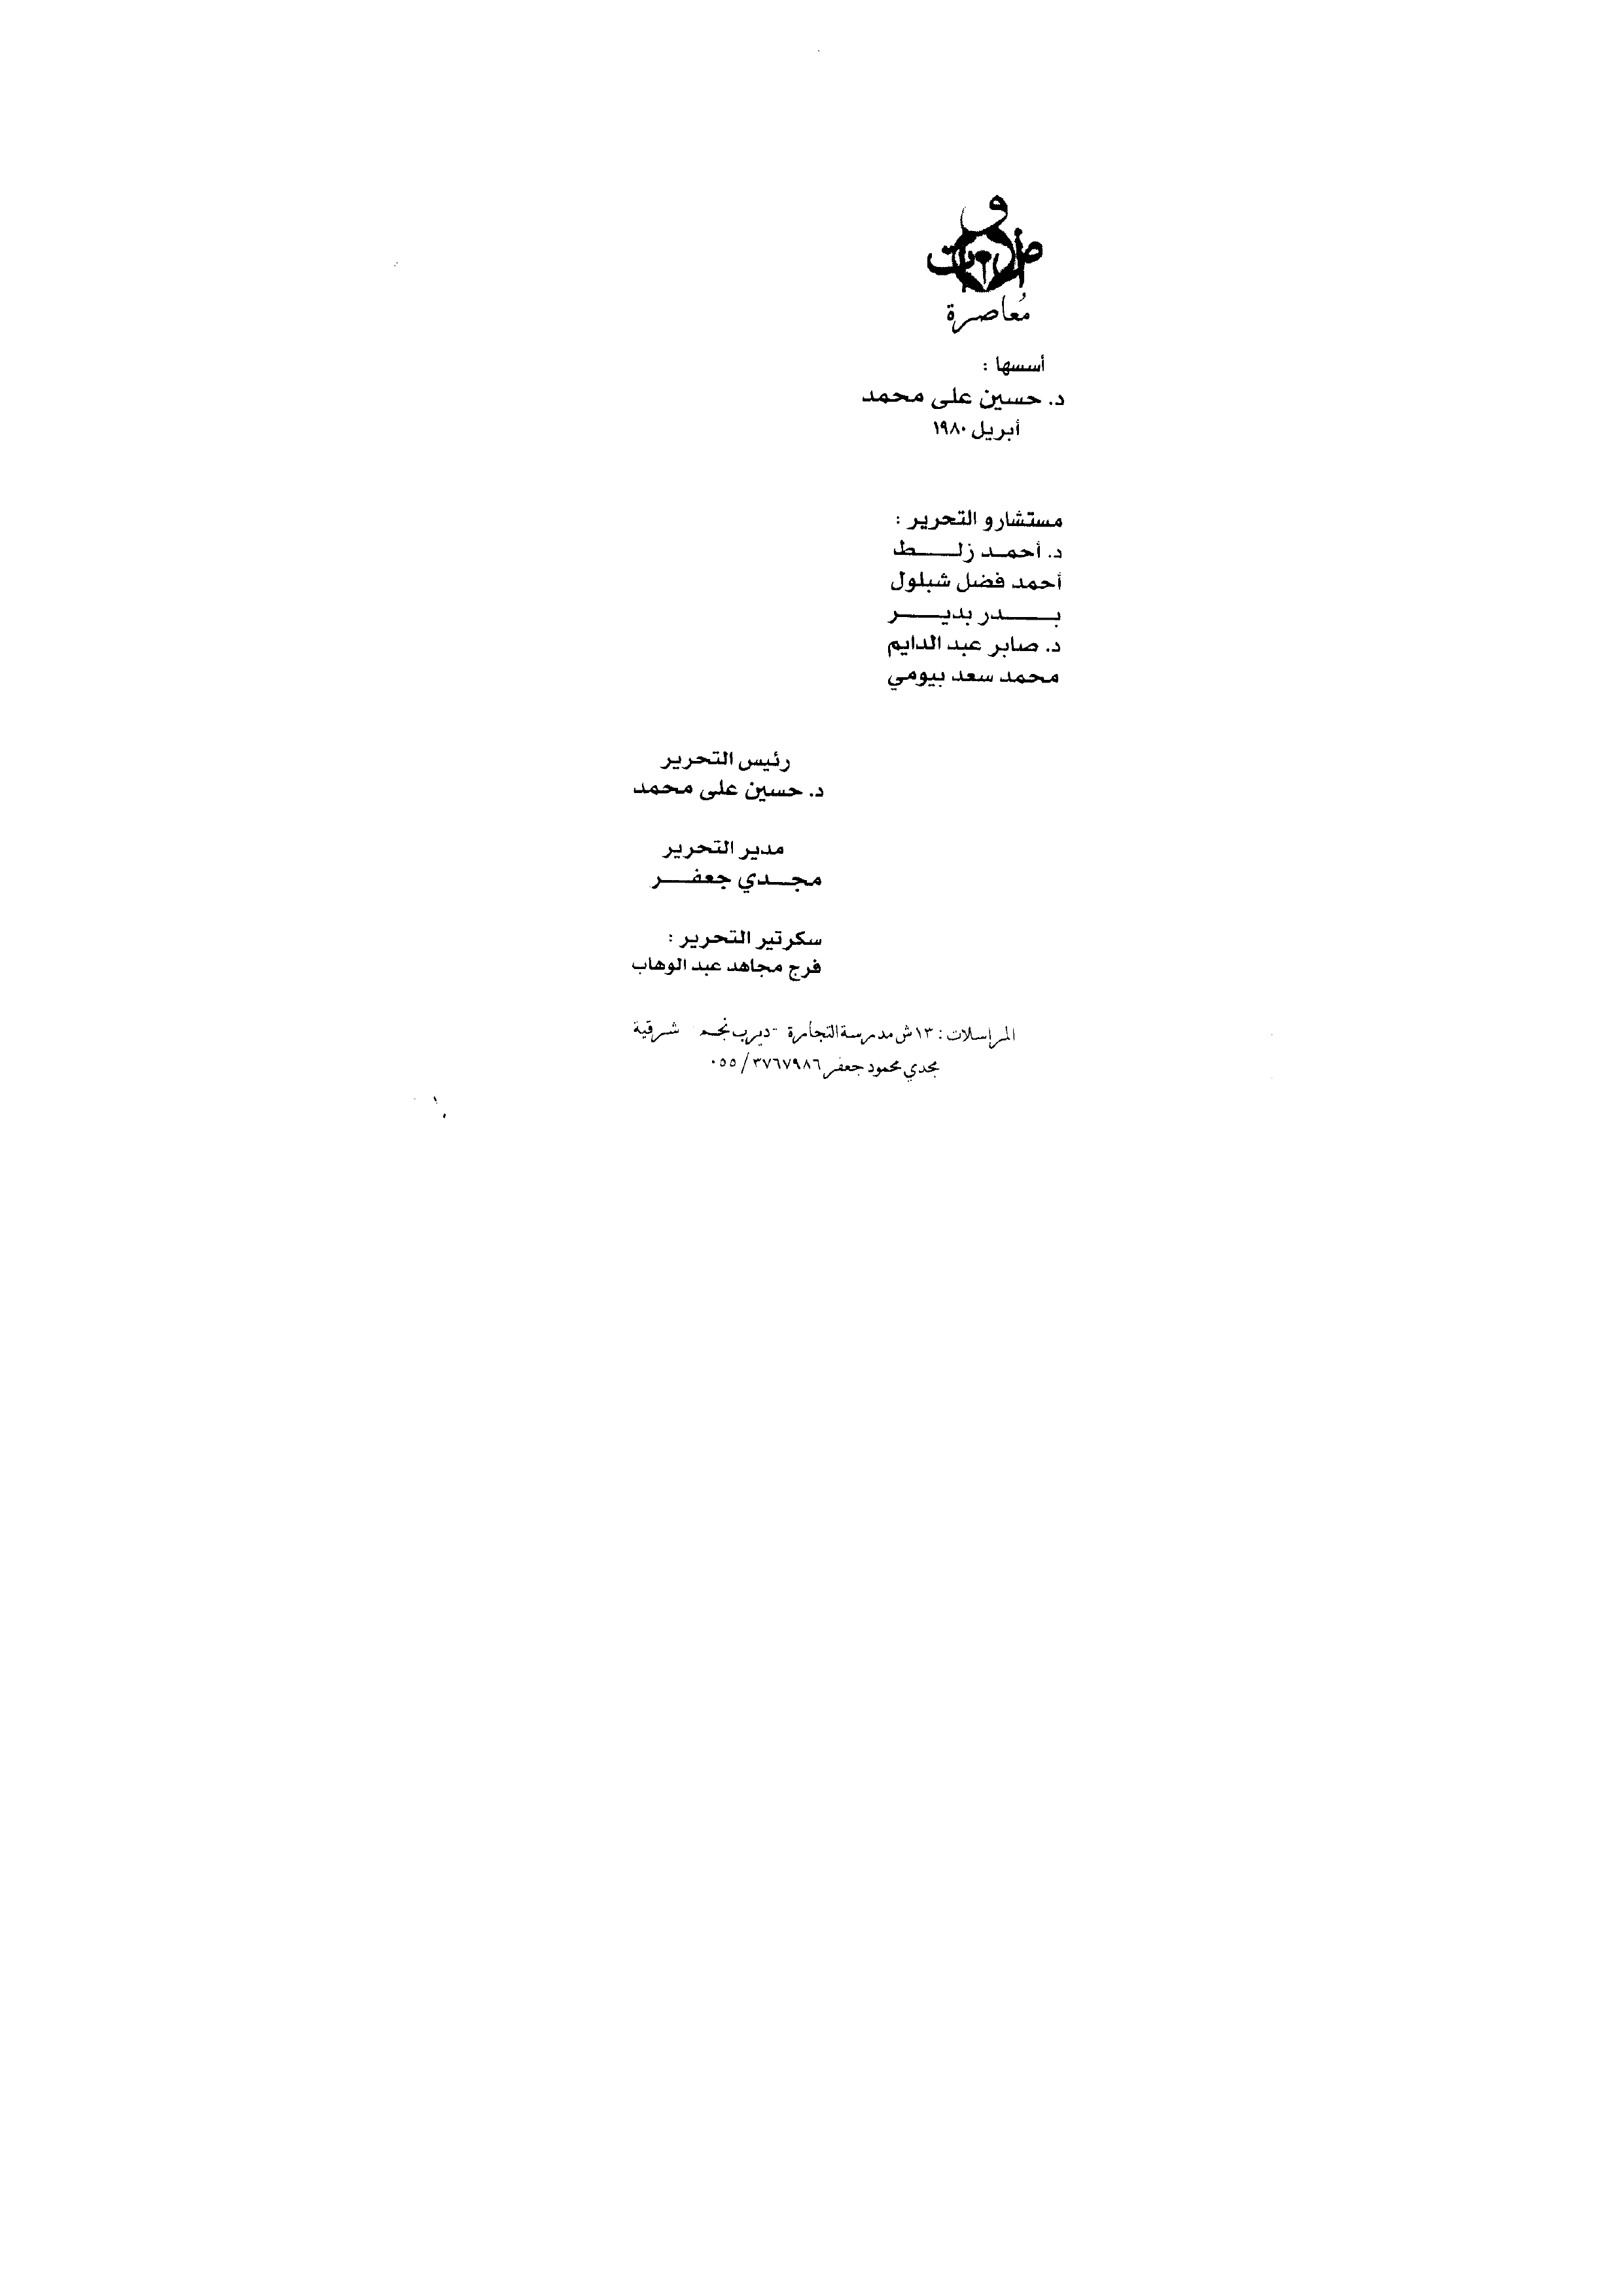 أصوات
مُعاصرة
أسسها :
د. حسين على محمد
أبريل ١٩٨٠
مستشارو التحرير :
د. أحمد زلط
أحمد فضل شبلول
بدر بدير
د. صابر عبد الدايم
محمد سعد بيومي
رئيس التحرير
د. حسين على محمد
مدير التحرير
مجدي جعفر
سكرتير التحرير :
فرج مجاهد عبد الوهاب
المراسلات : ١٣ ش مدرسة التجارة - ديرب نجم شرقية
مجدي محمود جعفر ٣٧٦٧٩٨٦ / ٠٥٥